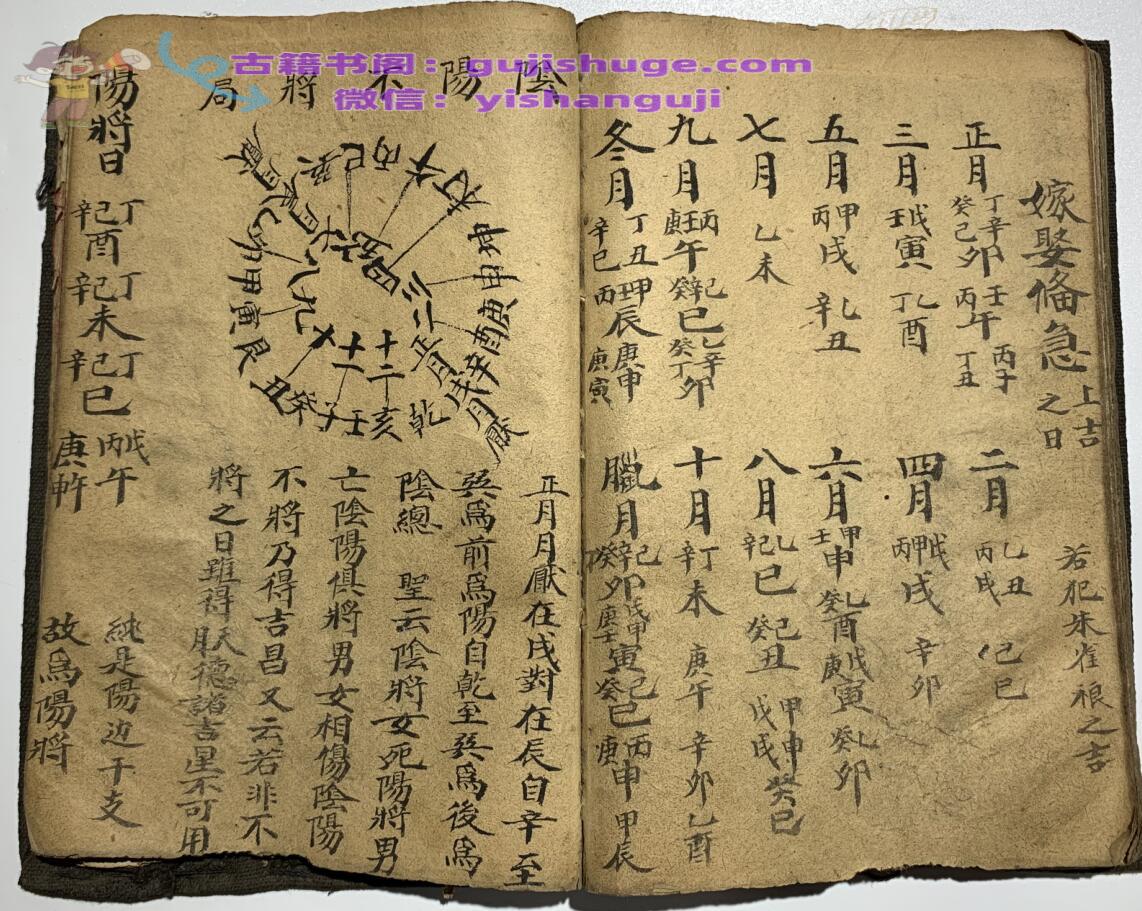 古籍书阁：gujishuge.com
微信：yishanguji
嫁娶俻急 上吉之日 若犯朱雀禄之吉
正月 丁辛癸己卯 壬丙午 丙子 丁丑
二月 乙丑 丙戌 己巳
三月 戊壬寅 乙丁酉
四月 戊甲丙戌 辛卯
五月 甲丙戌 乙辛丑
六月 甲壬申 乙癸酉 戊庚寅 乙癸卯
七月 乙未
八月 乙辛巳 己癸丑 甲申 戊戌 癸巳
九月 丙壬庚午 己辛癸巳 乙辛癸丁卯
十月 丁辛未 庚午 辛卯 乙酉
冬月 丁丑 辛巳 甲壬丙辰 庚申 庚寅
臘月 己辛癸丁卯 戊甲庚壬寅 己癸巳 丙庚申 甲辰
陰陽不將局
正月 二 三 四 五 六 七月 八 九 十 十一 十二
乾 亥 壬 子 癸 丑 艮 寅 甲 卯 乙 辰月 巽 巳 丙 午 丁 未 坤 申 庚 酉 辛 戌月厭
正月月厭在戌對在辰自辛至
巽為前為陽自乾至巽為後為
陰總 聖云陰將女死陽將男
亡陰陽俱將男女相傷陰陽
不將乃得吉昌又云若非不
將之日雖得天德諸吉星不可用
陽將日 丁己辛酉 丁己辛未 丁己辛巳 戊丙午 庚午
純是陽边干支
故為陽將